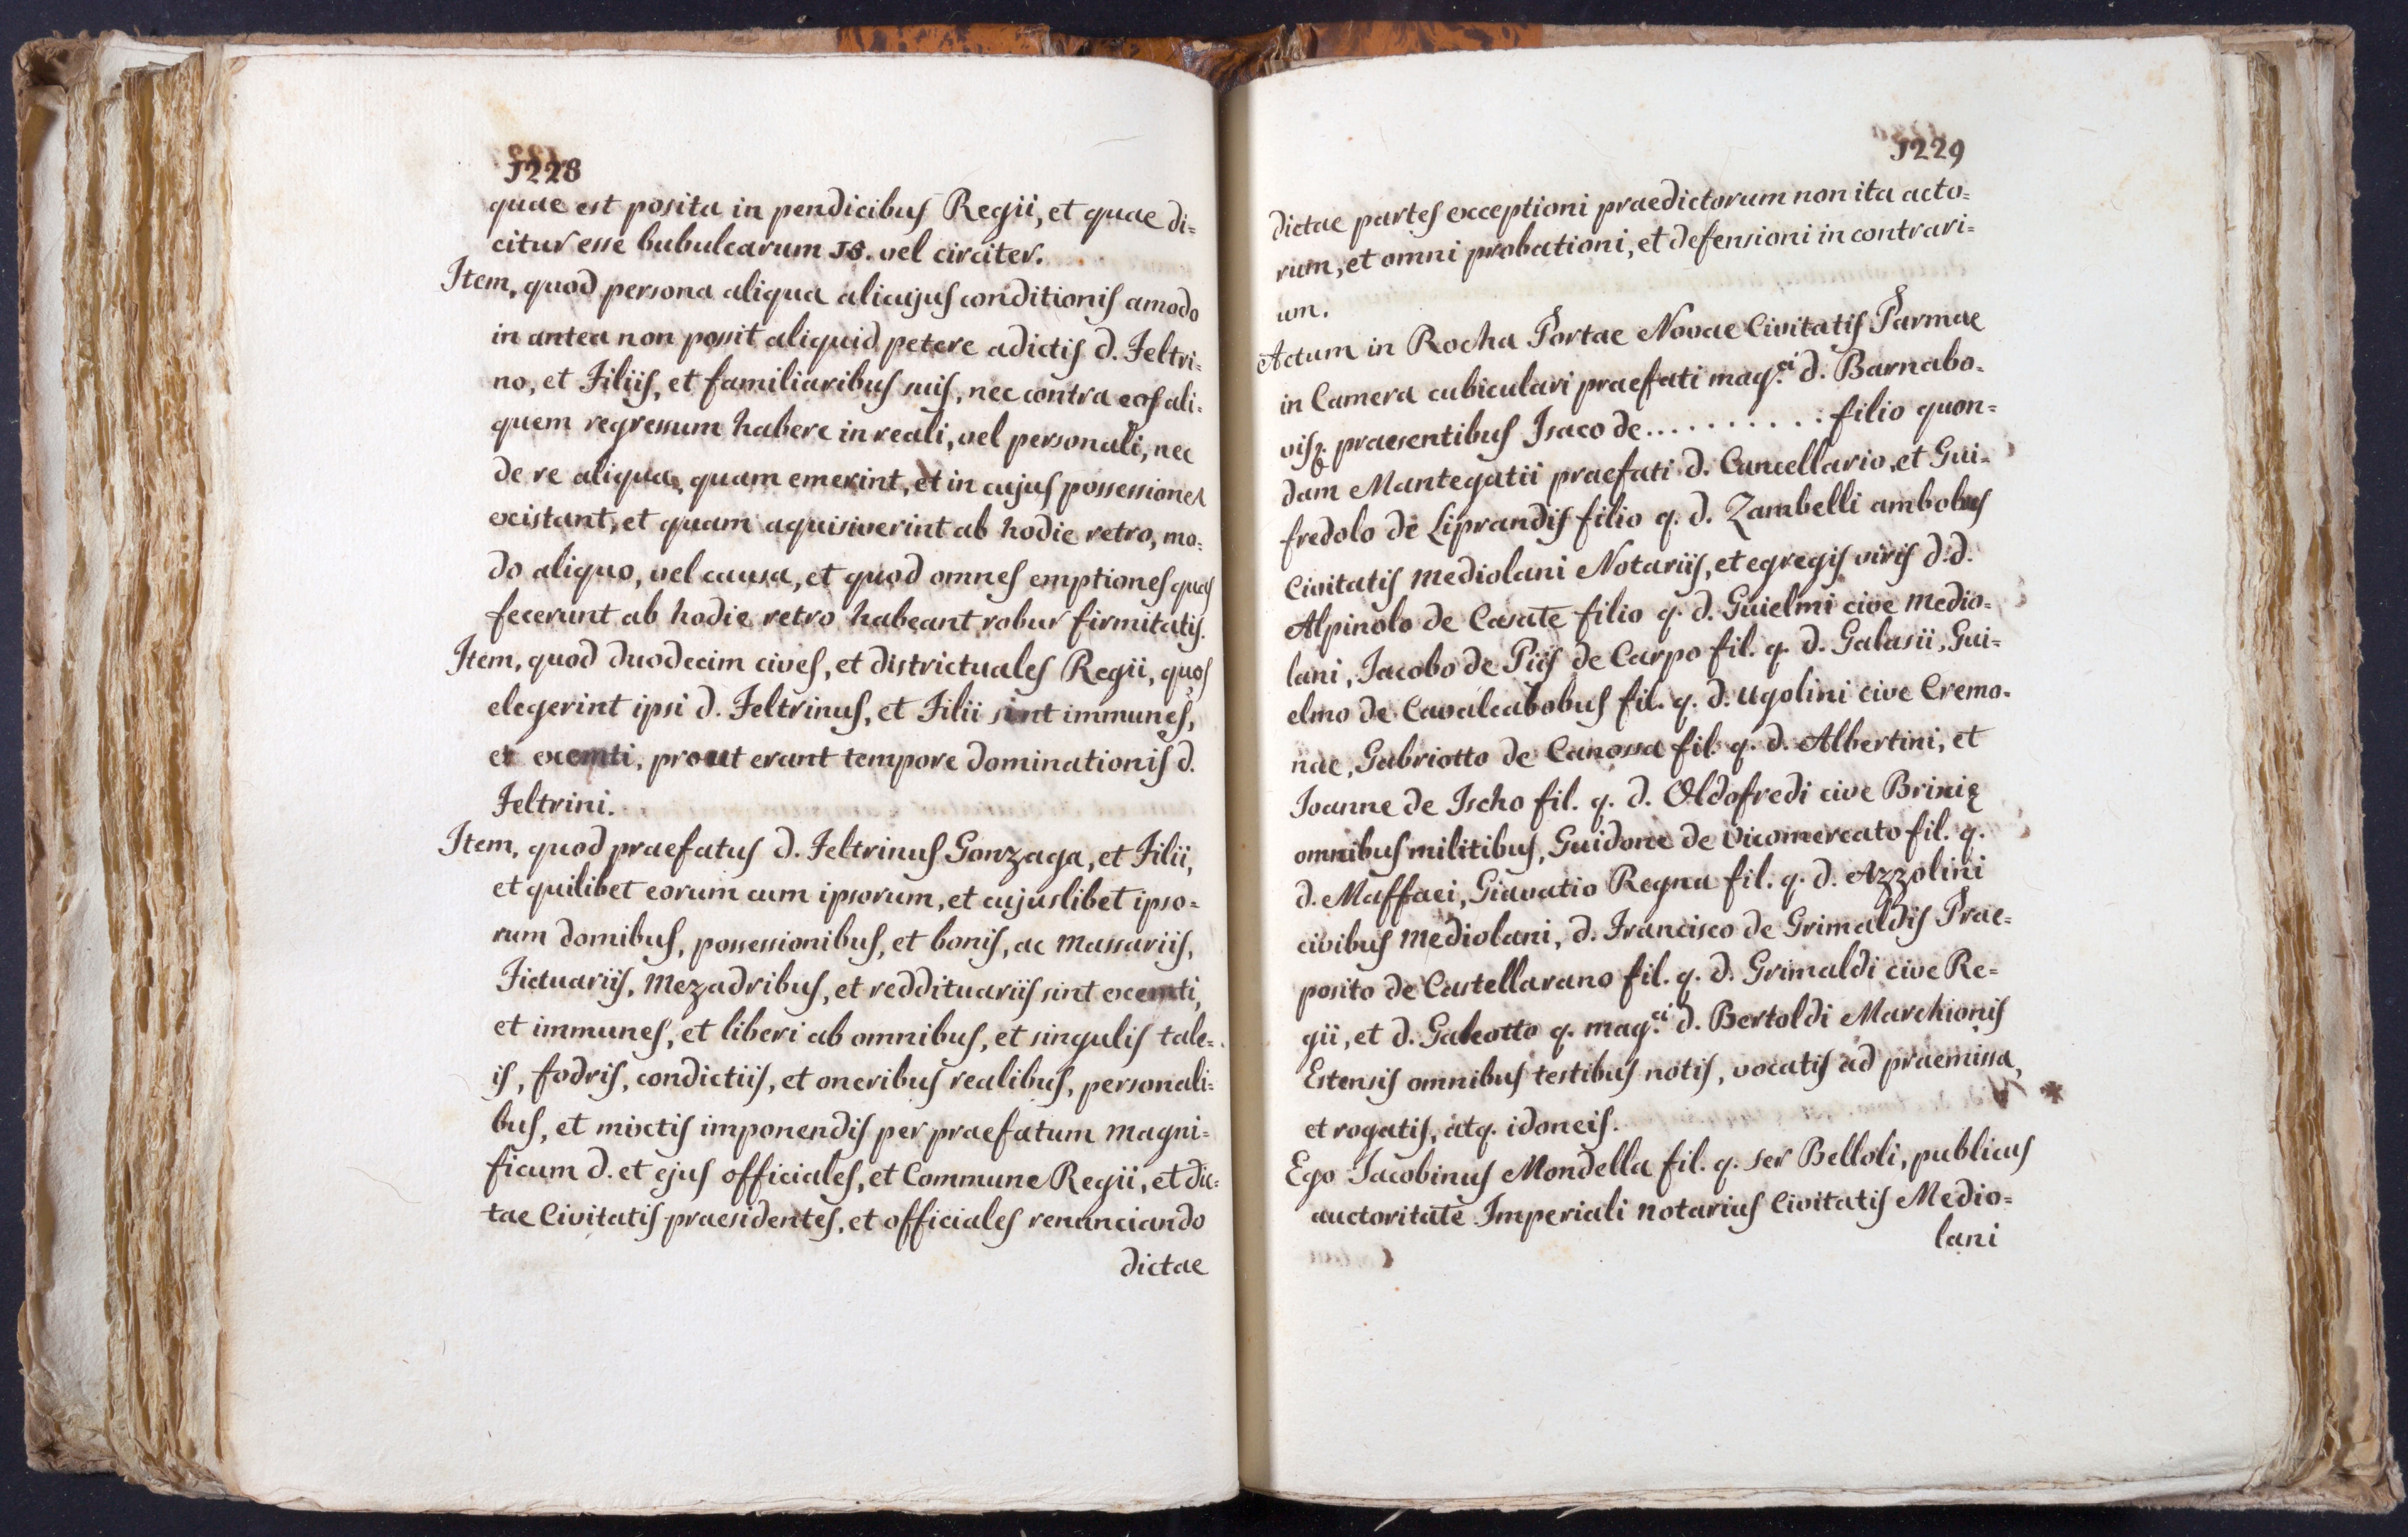 1228
quae est posita in pendicibus Regii, et quae di=
citur esse bubulcarum 18. vel circiter.
Item, quod persona aliqua alicujus conditionis amodo
in antea non possit aliquid petere adictis d. Feltri=
no, et Filiis, et familiaribus suis, nec contra eos ali=
quem regressum habere in reali, vel personali, nec
de re aliqua, quam emerint, et in cujus possessiones
existant, et quam aquisiverint ab hodie retro, mo=
do aliquo, vel causa, et quod omnes emptiones quas
fecerunt ab hodie retro habeant robur firmitatis.
Item, quod duodecim cives, et districtuales Regii, quos
elegerint ipsi d. Feltrinus, et Filii sint immunes,
et exemti, prout erant tempore dominationis d.
Feltrini.
Item, quod praefatus d. Feltrinus Gonzaga, et Filii,
et quilibet eorum cum ipsorum, et cujuslibet ipso=
rum domibus, possessionibus, et bonis, ac Massariis,
Fictuariis, Mezadribus, et reddituariis sint exemti,
et immunes, et liberi ab omnibus, et singulis tale=
is, fodris, condictiis, et oneribus realibus, personali=
bus, et mixtis imponendis per praefatum Magni=
ficum d. et ejus officiales, et Commune Regii, et dic=
tae Civitatis praesidentes, et officiales renunciando
dictae
1229
dictae partes exceptioni praedictorum non ita acto=
rum, et omni probationi, et defensioni in contrari=
um.
Actum in Rocha Portae Novae Civitatis Parmae
in Camera cubiculari praefati mag.ci d. Barnabo=
visq. praesentibus Isaco de .......... filio quon=
dam Mantegatii praefati d. Cancellario, et Gui=
fredolo de Liprandis filio q. d. Zambelli ambobus
Civitatis Mediolani Notariis, et egregis viris d.d.
Alpinolo de Casate filio q. d. Guielmi cive Medio=
lani, Jacobo de Piis de Carpo fil. q. d. Galasii, Gui=
elmo de Cavalcabobus fil. q. d. Ugolini cive Cremo=
nae, Gabriotto de Canossa fil. q. d. Albertini, et
Joanne de Ischo fil. q. d. Oldofredi cive Brixię
omnibus militibus, Guidone de Vicomercato fil. q.
d. Maffaei, Giavatio Regna fil. q. d. Azzolini
civibus Mediolani, d. Francisco de Grimaldis Prae=
posito de Castellarano fil. q. d. Grimaldi cive Re=
gii, et d. Galeotto q. mag.ci d. Bertoldi Marchionis
Estensis omnibus testibus notis, vocatis ad praemissa, *
et rogatis, atq. idoneis.
Ego Jacobinus Mondella fil. q. ser Belloli, publicus
auctoritate Imperiali notarius Civitatis Medio=
lani